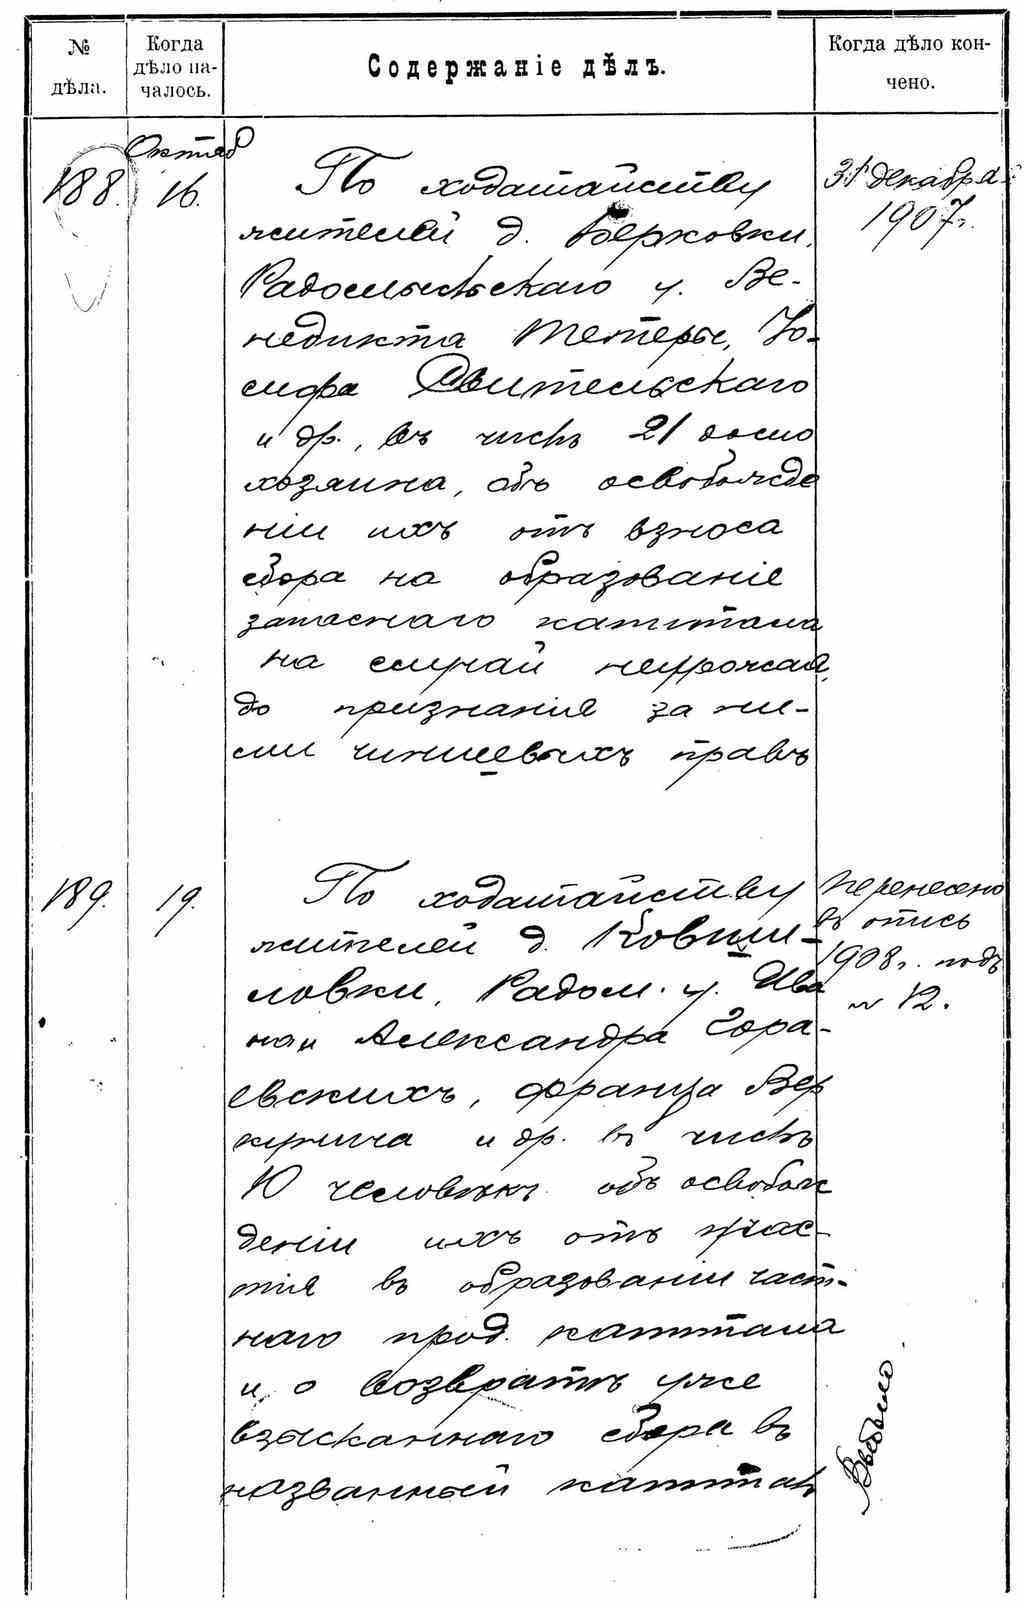 № дѣла.
Когда дѣло на-
чалось.
Содержаніе дѣлъ.
Когда дѣло кон-
чено.
Октяб
188. 16.
По ходатайству
жителей д. Берковки,
Радомысльскаго у. Ве-
недикта Тетеры, Іо-
сифа Свительскаго
и др., въ числѣ 21 домо
хозяина, объ освобожде
ніи ихъ отъ взноса
сбора на образованіе
запаснаго капитала
на случай неурожая,
до признанія за ни-
ми чиншевыхъ правъ
31 декабря
1907 г.
189. 19.
По ходатайству
жителей д. Ковши-
ловки, Радом. у. Ива
на и Александра Гора-
евскихъ, Франца Вер
и др. въ числѣ
10 человѣкъ объ освобож
деніи ихъ отъ учас-
тія въ образованіи част-
наго прод. капитала
и о возвратѣ уже
взысканнаго сбора въ
названный капиталъ
Перенесено
въ опись
1908 г. подъ
№ 12.
Выбыло.